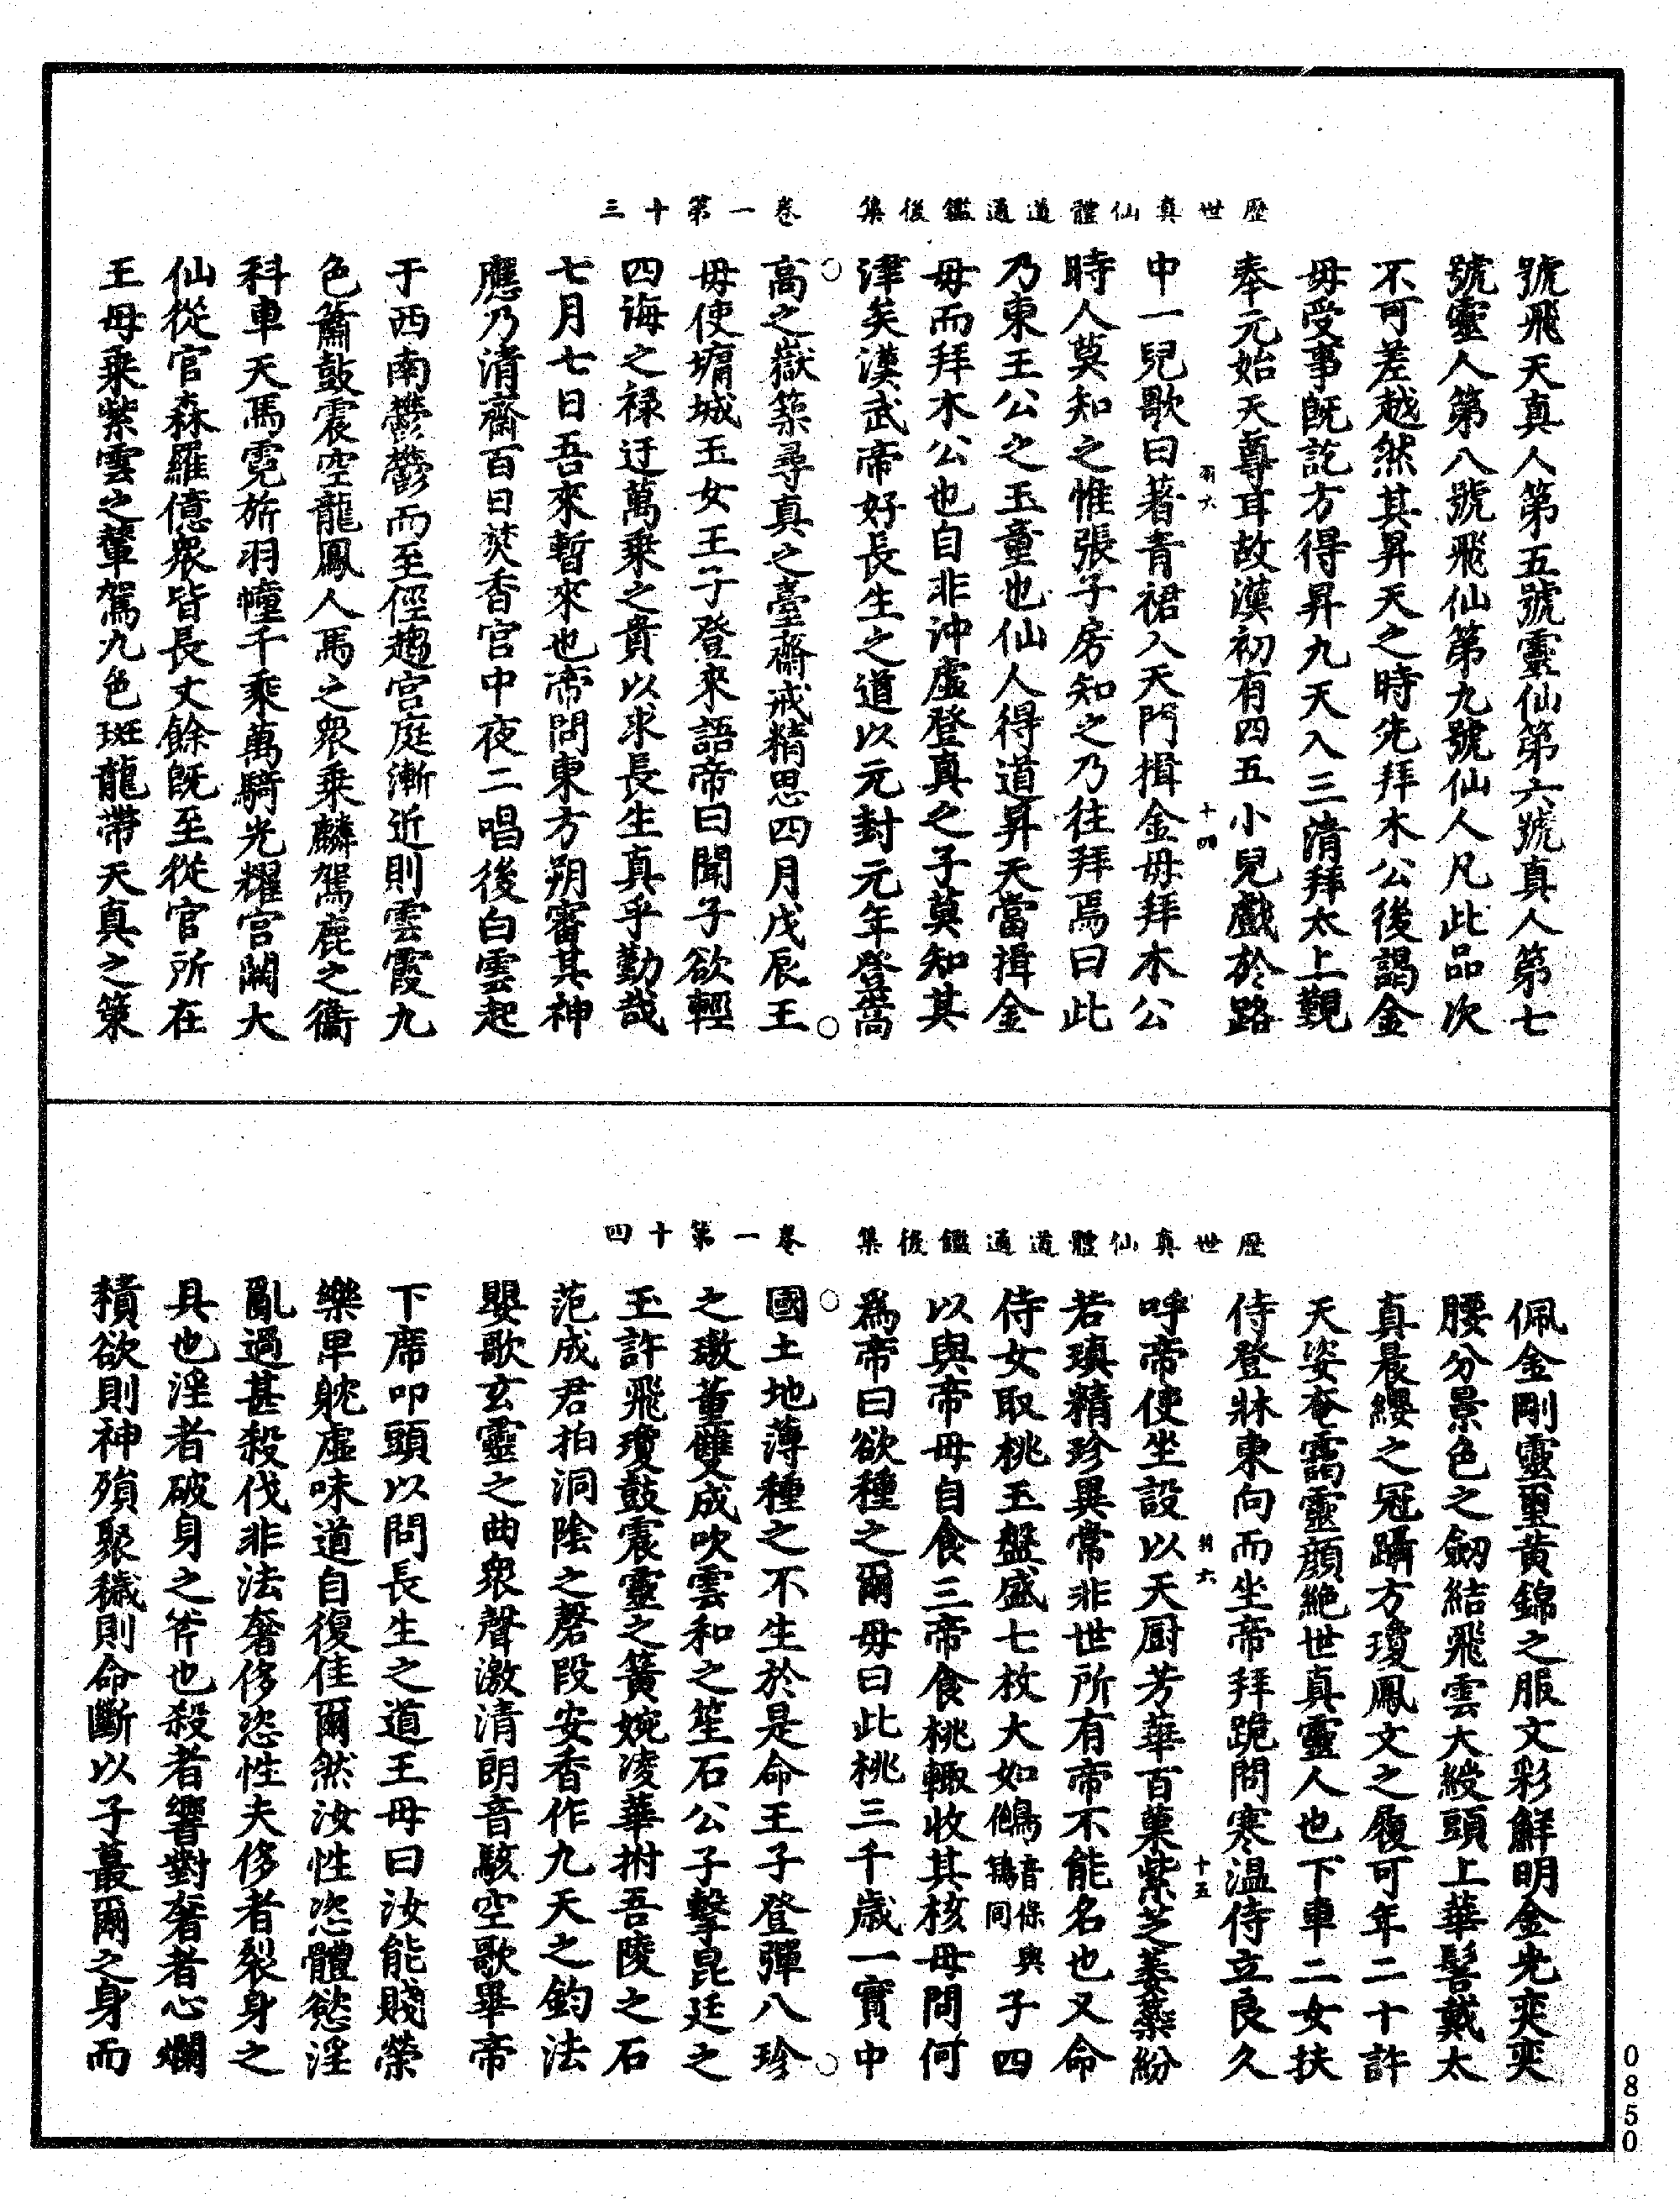 歷世真仙體道通鑑後集　卷一第十三
號飛天真人第五號靈仙第六號真人第七
號靈人第八號飛仙第九號仙人凡此品次
不可差越然其昇天之時先拜木公後謁金
母受事既訖方得昇九天入三清拜太上覲
奉元始天尊耳故漢初有四五小兒戲於路
羽六　十四
中一兒歌曰著青裙入天門揖金母拜木公
時人莫知之惟張子房知之乃往拜焉曰此
乃東王公之玉童也仙人得道昇天當揖金
母而拜木公也自非沖虛登真之子莫知其
津矣漢武帝好長生之道以元封元年登嵩
高之嶽築尋真之臺齋戒精思四月戊辰王
母使墉城玉女王子登來語帝曰聞子欲輕
四海之祿迂萬乘之貴以求長生真乎勤哉
七月七日吾來暫來也帝問東方朔審其神
應乃清齋百日焚香宮中夜二唱後白雲起
于西南鬱鬱而至徑趨宮庭漸近則雲霞九
色簫鼓震空龍鳳人馬之衆乘麟駕鹿之衞
科車天馬霓旂羽幢千乘萬騎光耀宮闕天
仙從官森羅億衆皆長丈餘既至從官所在
王母乘紫雲之輦駕九色斑龍帶天真之策
歷世真仙體道通鑑後集　卷一第十四
佩金剛靈璽黃錦之服文彩鮮明金光奕奕
腰分景色之劒結飛雲大綬頭上華髻戴太
真晨纓之冠躡方瓊鳳文之履可年二十許
天姿奄靄靈顏絶世真靈人也下車二女扶
侍登牀東向而坐帝拜跪問寒溫侍立良久
羽六　十五
呼帝使坐設以天厨芳華百菓紫芝萎蘂紛
若瑱精珍異常非世所有帝不能名也又命
侍女取桃玉盤盛七枚大如鵂音保與鴇同子四
以與帝母自食三帝食桃輙收其核母問何
爲帝曰欲種之爾母曰此桃三千歲一實中
國土地薄種之不生於是命王子登彈八珍
之璈董雙成吹雲和之笙石公子擊昆廷之
玉許飛瓊鼓震靈之簧婉凌華拊吾陵之石
范成君拍洞陰之磬段安香作九天之鈞法
嬰歌玄靈之曲衆聲激清朗音駭空歌畢帝
下席叩頭以問長生之道王母曰汝能賤榮
樂卑躭虛味道自復佳爾然汝性恣體慾淫
亂過甚殺伐非法奢侈恣性夫侈者裂身之
具也淫者破身之斧也殺者響對奢者心爛
積欲則神殞聚穢則命斷以子蕞爾之身而
0850